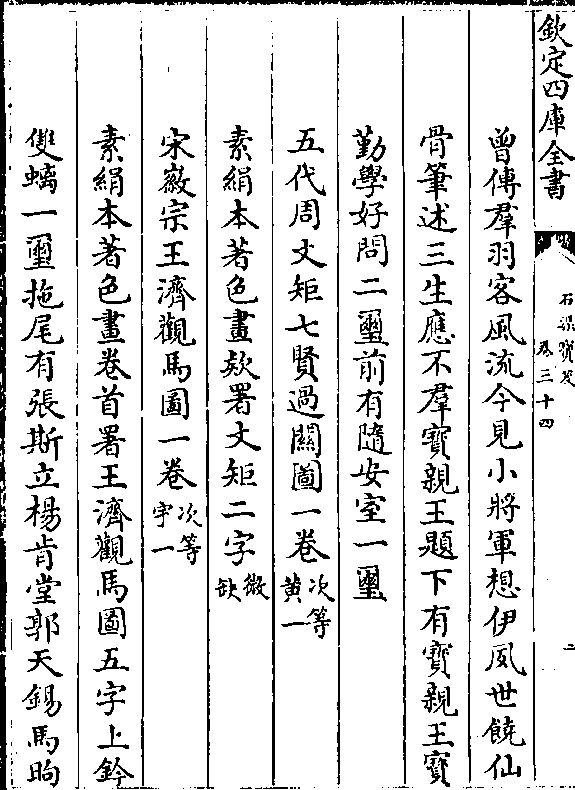 欽定四庫全書
石渠寶笈
卷三十四
二
曾傳羣羽客風流今見小將軍想伊夙世饒仙
骨筆述三生應不羣寶親王題下有寶親王寶
勤學好問二璽前有隨安室一璽
五代周文矩七賢過關圖一卷次等黃一
素絹本著色畫欵署文矩二字微缺
宋徽宗王濟觀馬圖一卷次等宇一
素絹本著色畫卷首署王濟觀馬圖五字上鈐
雙螭一璽拖尾有張斯立楊肯堂郭天錫馬昫